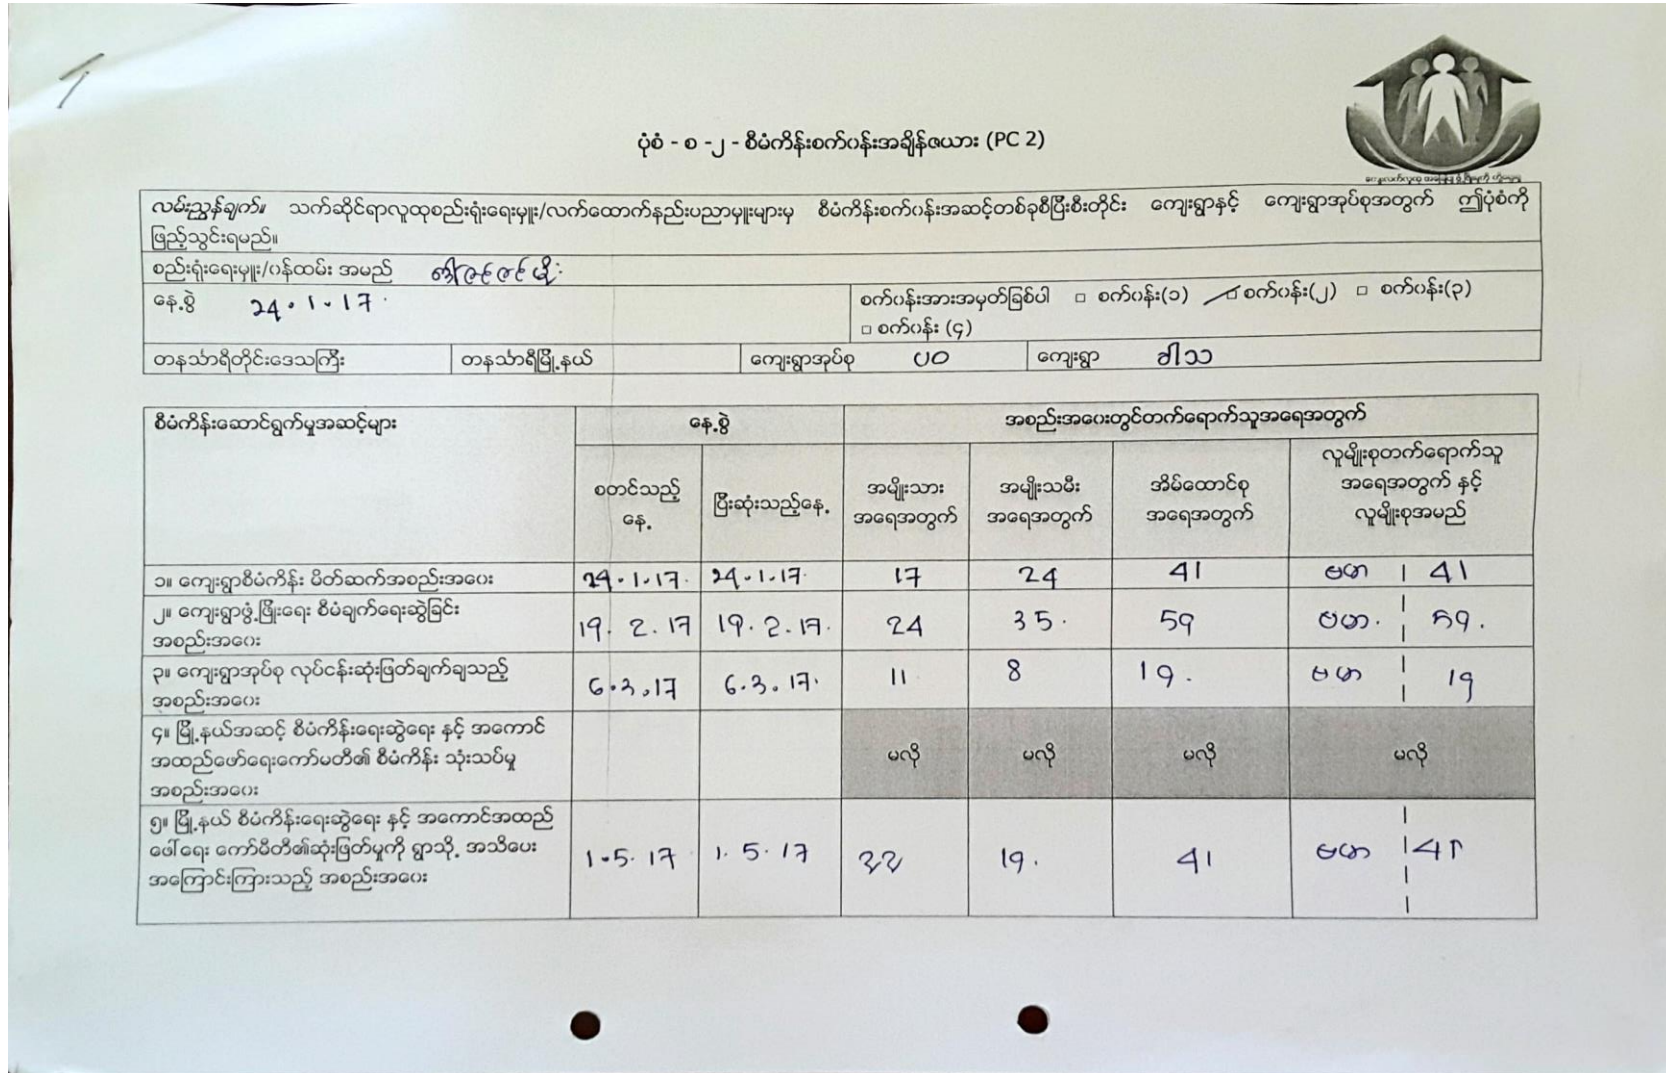 ပုံစံ - စ -၂ - စီမံကိန်းစက်ဝန်းအချိန်ဇယား (PC 2)
လမ်းညွှန်ချက်။ သက်ဆိုင်ရာလူထုစည်းရုံးရေးမှူး/လက်ထောက်နည်းပညာမှူးများမှ စီမံကိန်းစက်ဝန်းအဆင့်တစ်ခုစီပြီးစီးတိုင်း ကျေးရွာနှင့် ကျေးရွာအုပ်စုအတွက် ဤပုံစံကို
ဖြည့်သွင်းရမည်။
စည်းရုံးရေးမှူး/ဝန်ထမ်း အမည်
နေ့စွဲ 24.1.17.
စက်ဝန်းအားအမှတ်ခြစ်ပါ □ စက်ဝန်း(၁) □ စက်ဝန်း(၂) □ စက်ဝန်း(၃)
□ စက်ဝန်း (၄)
တနင်္သာရီတိုင်းဒေသကြီး တနင်္သာရီမြို့နယ် ကျေးရွာအုပ်စု ပဝ ကျေးရွာ ဒါသ
စီမံကိန်းဆောင်ရွက်မှုအဆင့်များ နေ့စွဲ အစည်းအဝေးတွင်တက်ရောက်သူအရေအတွက်
စတင်သည့်
နေ့
ပြီးဆုံးသည့်နေ့
အမျိုးသား
အရေအတွက်
အမျိုးသမီး
အရေအတွက်
အိမ်ထောင်စု
အရေအတွက်
လူမျိုးစုတက်ရောက်သူ
အရေအတွက် နှင့်
လူမျိုးစုအမည်
၁။ ကျေးရွာစီမံကိန်း မိတ်ဆက်အစည်းအဝေး 24.1.17. 24.1.17. 17 24 41 ဗမာ | 41
၂။ ကျေးရွာဖွံ့ဖြိုးရေး စီမံချက်ရေးဆွဲခြင်း
အစည်းအဝေး
19. 2. 17 19. 2. 17. 24 35. 59 ဗမာ. | 59.
၃။ ကျေးရွာအုပ်စု လုပ်ငန်းဆုံးဖြတ်ချက်ချသည့်
အစည်းအဝေး
6.3.17 6.3.17. 11 8 19. ဗမာ | 19
၄။ မြို့နယ်အဆင့် စီမံကိန်းရေးဆွဲရေး နှင့် အကောင်
အထည်ဖော်ရေးကော်မတီ၏ စီမံကိန်း သုံးသပ်မှု
အစည်းအဝေး
မလို မလို မလို မလို
၅။ မြို့နယ် စီမံကိန်းရေးဆွဲရေး နှင့် အကောင်အထည်
ဖေါ်ရေး ကော်မီတီ၏ဆုံးဖြတ်မှုကို ရွာသို့ အသိပေး
အကြောင်းကြားသည့် အစည်းအဝေး
1.5.17 1.5.17 22 19. 41 ဗမာ | 41